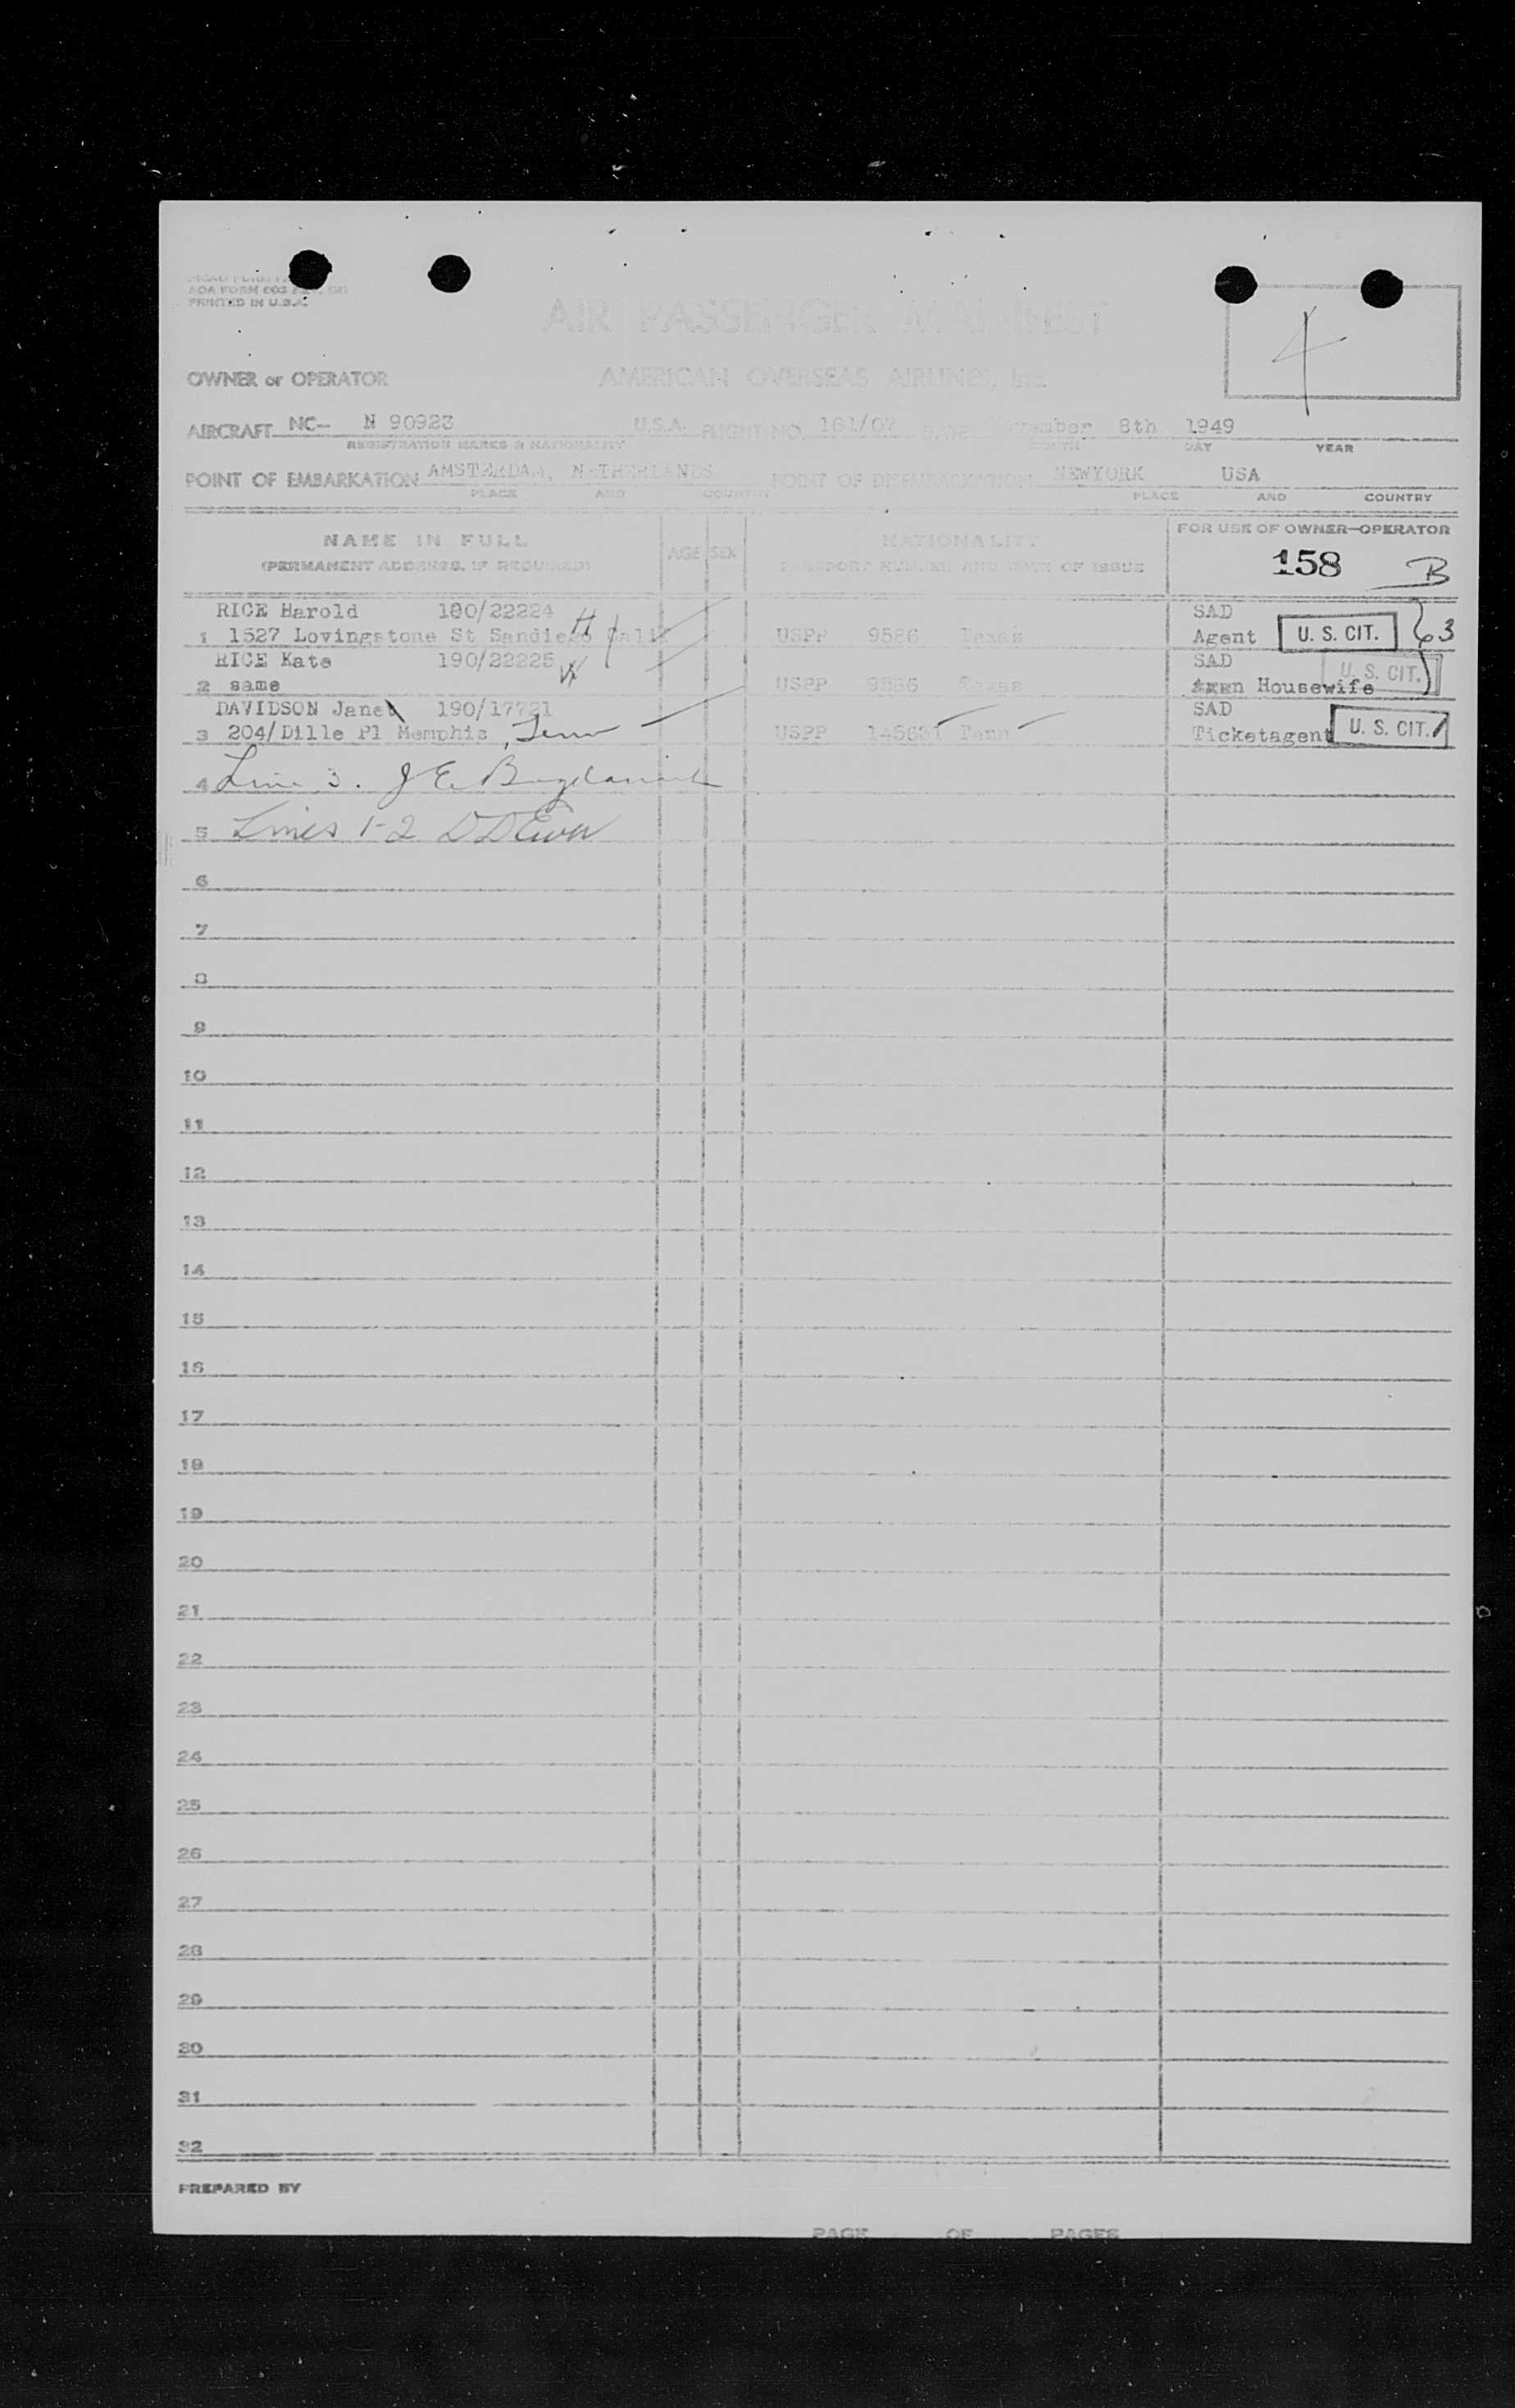 AOA FORM 603
PRINTED IN U.S.A.
AIR PASSENGER MANIFEST
4
OWNER or OPERATOR AMERICAN OVERSEAS AIRLINES, Inc.
AIRCRAFT NC- N 90923 U.S.A. FLIGHT NO. 161/07 8th 1949
REGISTRATION MARKS & NATIONALITY MONTH DAY YEAR
POINT OF EMBARKATION AMSTERDAM, NETHERLANDS POINT OF DISEMBARKATION NEWYORK USA
PLACE AND COUNTRY PLACE AND COUNTRY
NAME IN FULL AGE SEX NATIONALITY FOR USE OF OWNER-OPERATOR
(PERMANENT ADDRESS, IF REQUIRED) PASSPORT NUMBER AND DATE OF ISSUE 158 B
RICE Harold 180/22224 H SAD
1 1527 Lovingstone St Sandiego Calif USPP 9586 Texas Agent U. S. CIT. 63
RICE Kate 190/22225 SAD
2 same USPP 9586 Texas Housewife U. S. CIT.
DAVIDSON Janet 190/17721 SAD
3 204/Dille Pl Memphis, Tenn USPP Tenn Ticketagent U. S. CIT.
4 Line 3. J E
5 Lines 1-2 D D
6
7
8
9
10
11
12
13
14
15
16
17
18
19
20
21
22
23
24
25
26
27
28
29
30
31
32
PREPARED BY
PAGE OF PAGES